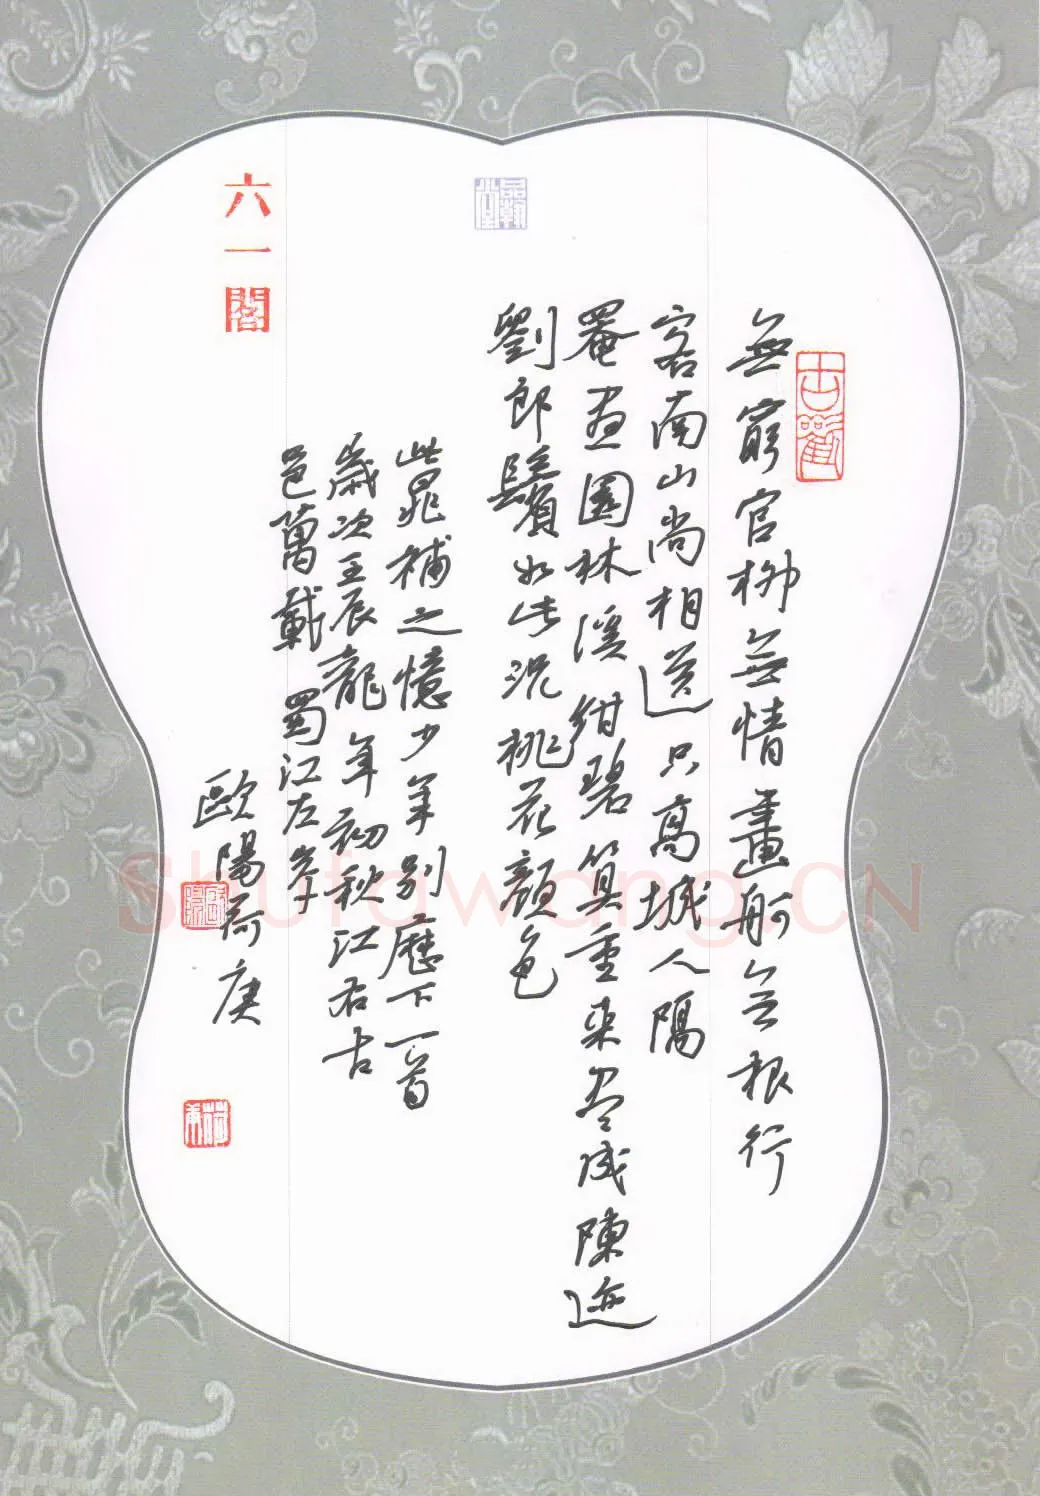 無窮官柳無情畫舸無根行
客南山尚相送只高城人隔
罨画園林溪紺碧算重来尽成陳迹
劉郎鬢如此況桃花顔色
此晁補之憶少年別歷下一首
歲次壬辰龍年初秋江右古
邑萬載蜀江左岸
歐陽荷庚
六一閣
品翰堂
Shufawang.CN